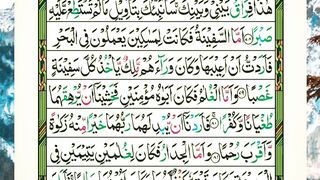 هٰذَا فِرَاقُ بَيْنِيْ وَبَيْنِكَ سَاُنَبِّئُكَ بِتَاْوِيْلِ مَا لَمْ تَسْتَطِعْ عَّلَيْهِ
صَبْرًا ۞ اَمَّا السَّفِيْنَةُ فَكَانَتْ لِمَسٰكِيْنَ يَعْمَلُوْنَ فِي الْبَحْرِ
فَاَرَدْتُّ اَنْ اَعِيْبَهَا وَكَانَ وَرَآءَهُمْ مَّلِكٌ يَّاْخُذُ كُلَّ سَفِيْنَةٍ
غَصْبًا ۞ وَاَمَّا الْغُلٰمُ فَكَانَ اَبَوٰهُ مُؤْمِنَيْنِ فَخَشِيْنَآ اَنْ يُّرْهِقَهُمَا
طُغْيَانًا وَّكُفْرًا ۞ فَاَرَدْنَآ اَنْ يُّبْدِلَهُمَا رَبُّهُمَا خَيْرًا مِّنْهُ زَكٰوةً
وَّاَقْرَبَ رُحْمًا ۞ وَاَمَّا الْجِدَارُ فَكَانَ لِغُلٰمَيْنِ يَتِيْمَيْنِ فِي